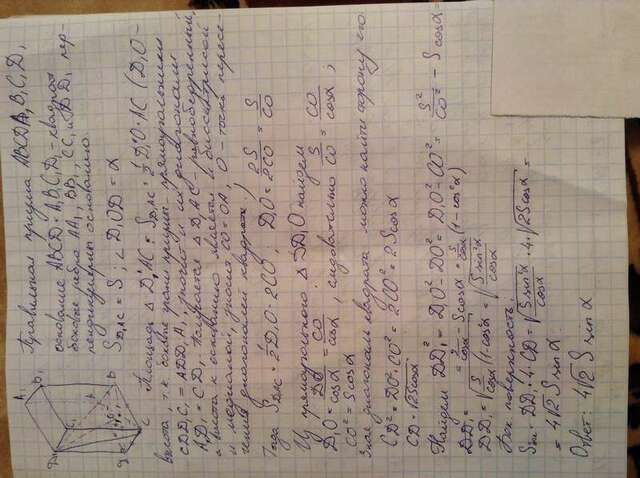 Правильная призма ABCDA₁B₁C₁D₁
основание ABCD и A₁B₁C₁D₁ - квадрат
боковые ребра AA₁, BB₁, CC₁ и DD₁ пер-
пендикулярны основанию.
S D₁AC = S; ∠D₁OD = α
Площадь Δ D₁AC = S D₁AC = ½ D₁O·AC (D₁O -
высота), т.к. боковые грани призмы - прямоугольники
CDD₁C₁ = ADD₁A₁, значит и их диагонали
AD₁ = CD₁. Получается Δ D₁AC - равнобедренный,
а высота к основанию является и биссектрисой
и медианой, значит CO = OA, O - точка пересе-
чения диагоналей квадрата)
Тогда S D₁AC = ½ D₁O · 2CO; D₁O = 2S/2CO = S/CO
Из прямоугольного Δ DD₁O найдем
D₁O = DO/cosα = CO/cosα, следовательно S/CO = CO/cosα;
CO² = S cosα
Зная диагональ квадрата можно найти сторону его
CD² = DO² + CO² = 2CO² = 2S cosα
CD = √2S cosα
Найдем DD₁² = D₁O² - DO² = D₁O² - CO² = S²/CO² - S cosα =
= S/cosα - S cosα = S/cosα (1 - cos²α)
DD₁ = √S/cosα (1 - cos²α) = √S sin²α/cosα
Бок. поверхность:
Sбок = DD₁ · 4·CD = √S sin²α/cosα · 4·√2S cosα =
= 4√2 S sin α
Ответ: 4√2 S sin α